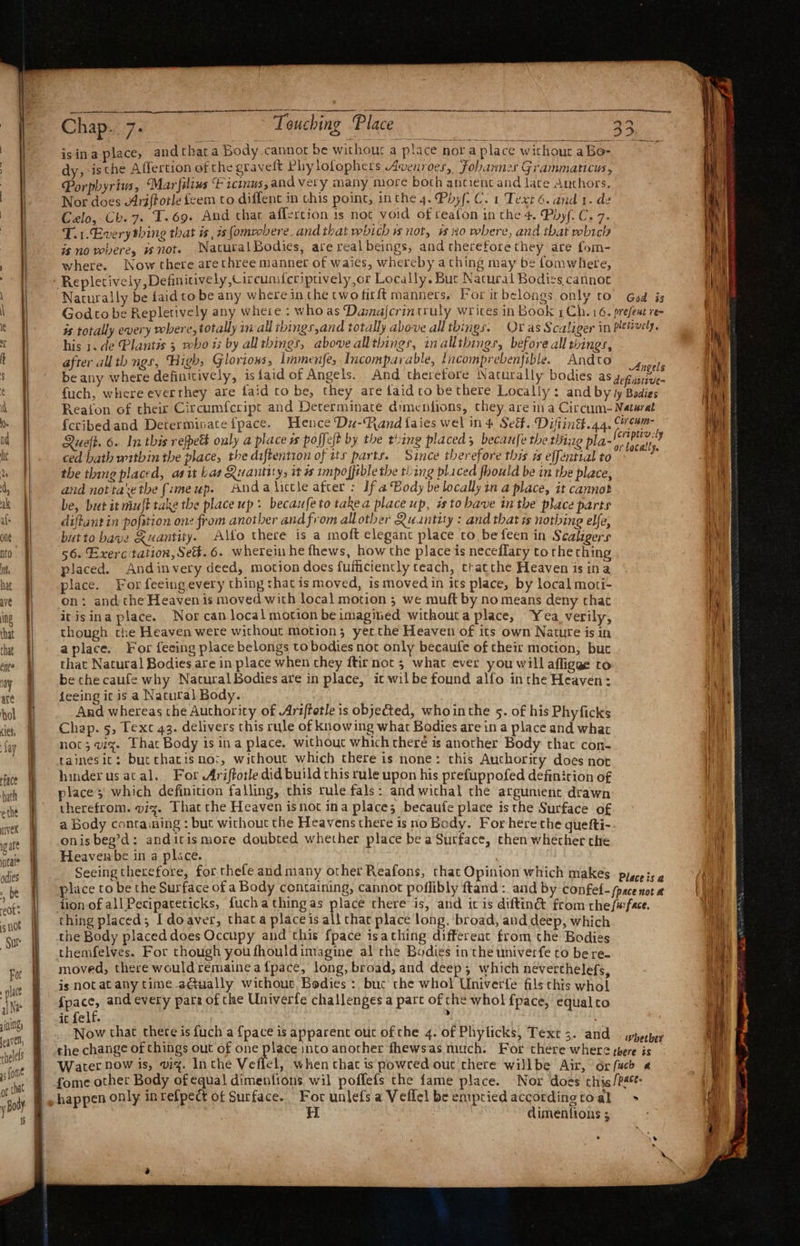 Chap. 7. Touching Place 33
is in a place, and that a Body cannot be without a place nor a place without a Bo-
dy, is the Assertion of the gravest Phylosophers Avenroes, Johannes Grammaticus,
Porphyrius, Marsilius Ficinus, and very many more both antient and late Authors.
Nor does Aristotle seem to dissent in this point, in the 4. Phys. C. 1 Text 6. and 1. de
Cælo, Ch. 7. T. 69. And that assertion is not void of reason in the 4. Phys. C. 7.
T. 1. Every thing that is, is somwhere. and that which is not, is no where, and that which
is no where, is not. Natural Bodies, are real beings, and therefore they are som-
where. Now there are three manner of waies, whereby a thing may be somwhere,
Repletively, Definitively, Circumscriptively, or Locally. But Natural Bodies cannot
Naturally be said to be any where in the two first manners. For it belongs only to
God to be Repletively any where: who as Damascrin truly writes in Book 1 Ch. 16.
is totally every where, totally in all things, and totally above all things. Or as Scaliger in
his 1. de Plantis; who is by all things, above all things, in all things, before all things,
after all things, High, Glorious, Immense, Incomparable, Incomprehensible. And to
be any where definitively, is said of Angels. And therefore Naturally bodies as
such, where ever they are said to be, they are said to be there Locally: and by
Reason of their Circumscript and Determinate dimensions, they are in a Circum-
scribed and Determinate space. Hence Du-Rand saies wel in 4 Sect. Distinct. 44.
Quest. 6. In this respect only a place is possest by the thing placed; because the thing pla-
ced hath within the place, the distention of its parts. Since therefore this is essential to
the thing placed, as it has Quantity, it is impossible the thing placed should be in the place,
and not take the same up. And a little after: If a Body be locally in a place, it cannot
be, but it must take the place up: because to take a place up, is to have in the place parts
distant in position one from another and from all other Quantity: and that is nothing else,
but to have Quantity. Also there is a most elegant place to be seen in Scaligers
56. Exercitation, Sect. 6. wherein he shews, how the place is necessary to the thing
placed. And in very deed, motion does sufficiently teach, that the Heaven is in a
place. For seeing every thing that is moved, is moved in its place, by local moti-
on: and the Heaven is moved with local motion; we must by no means deny that
it is in a place. Nor can local motion be imagined without a place, Yea verily,
though the Heaven were without motion; yet the Heaven of its own Nature is in
a place. For seeing place belongs to bodies not only because of their motion, but
that Natural Bodies are in place when they stir not; what ever you will assigne to
be the cause why Natural Bodies are in place, it wil be found also in the Heaven:
seeing it is a Natural Body.
And whereas the Authority of Aristotle is objected, who in the 5. of his Physicks
Chap. 5, Text 43. delivers this rule of knowing what Bodies are in a place and what
not; viz. That Body is in a place, without which there is another Body that con-
taines it: but that is not, without which there is none: this Authority does not
hinder us at al. For Aristotle did build this rule upon his presuppofed definition of
place; which definition falling, this rule fals: and withal the argument drawn
therefrom. viz. That the Heaven is not in a place; because place is the Surface of
a Body containing: but without the Heavens there is no Body. For here the questi-
on is beg'd: and it is more doubted whether place be a Surface, then whether the
Heaven be in a place.
Seeing therefore, for these and many other Reasons, that Opinion which makes
place to be the Surface of a Body containing, cannot possibly stand: and by confes-
sion of all Peripateticks, such a thing as place there is, and it is distinct from the
thing placed; I do aver, that a place is all that place long, broad, and deep, which
the Body placed does Occupy and this space is a thing different from the Bodies
themselves. For though you should imagine al the Bodies in the universe to be re-
moved, there would remaine a space, long, broad, and deep; which nevertheless,
is not at any time actually without Bodies: but the whol Universe fils this whol
space, and every part of the Universe challenges a part of the whol space, equal to
it self.
Now that there is such a space is apparent out of the 4. of Physicks, Text 3. and
the change of things out of one place into another shews as much. For there where
Water now is, viz. In the Vessel, when that is powred out there will be Air, or
some other Body of equal dimensions wil possess the same place. Nor does this
happen only in respect of Surface. For unless a Vessel be emptied according to al
H dimensions;
God is
present re-
pletively.
Angels
definitive-
ly Bodies
Natural
Circum-
scriptively
or locally.
Place is a
space not a
surface.
Whether
there is
such a
space.